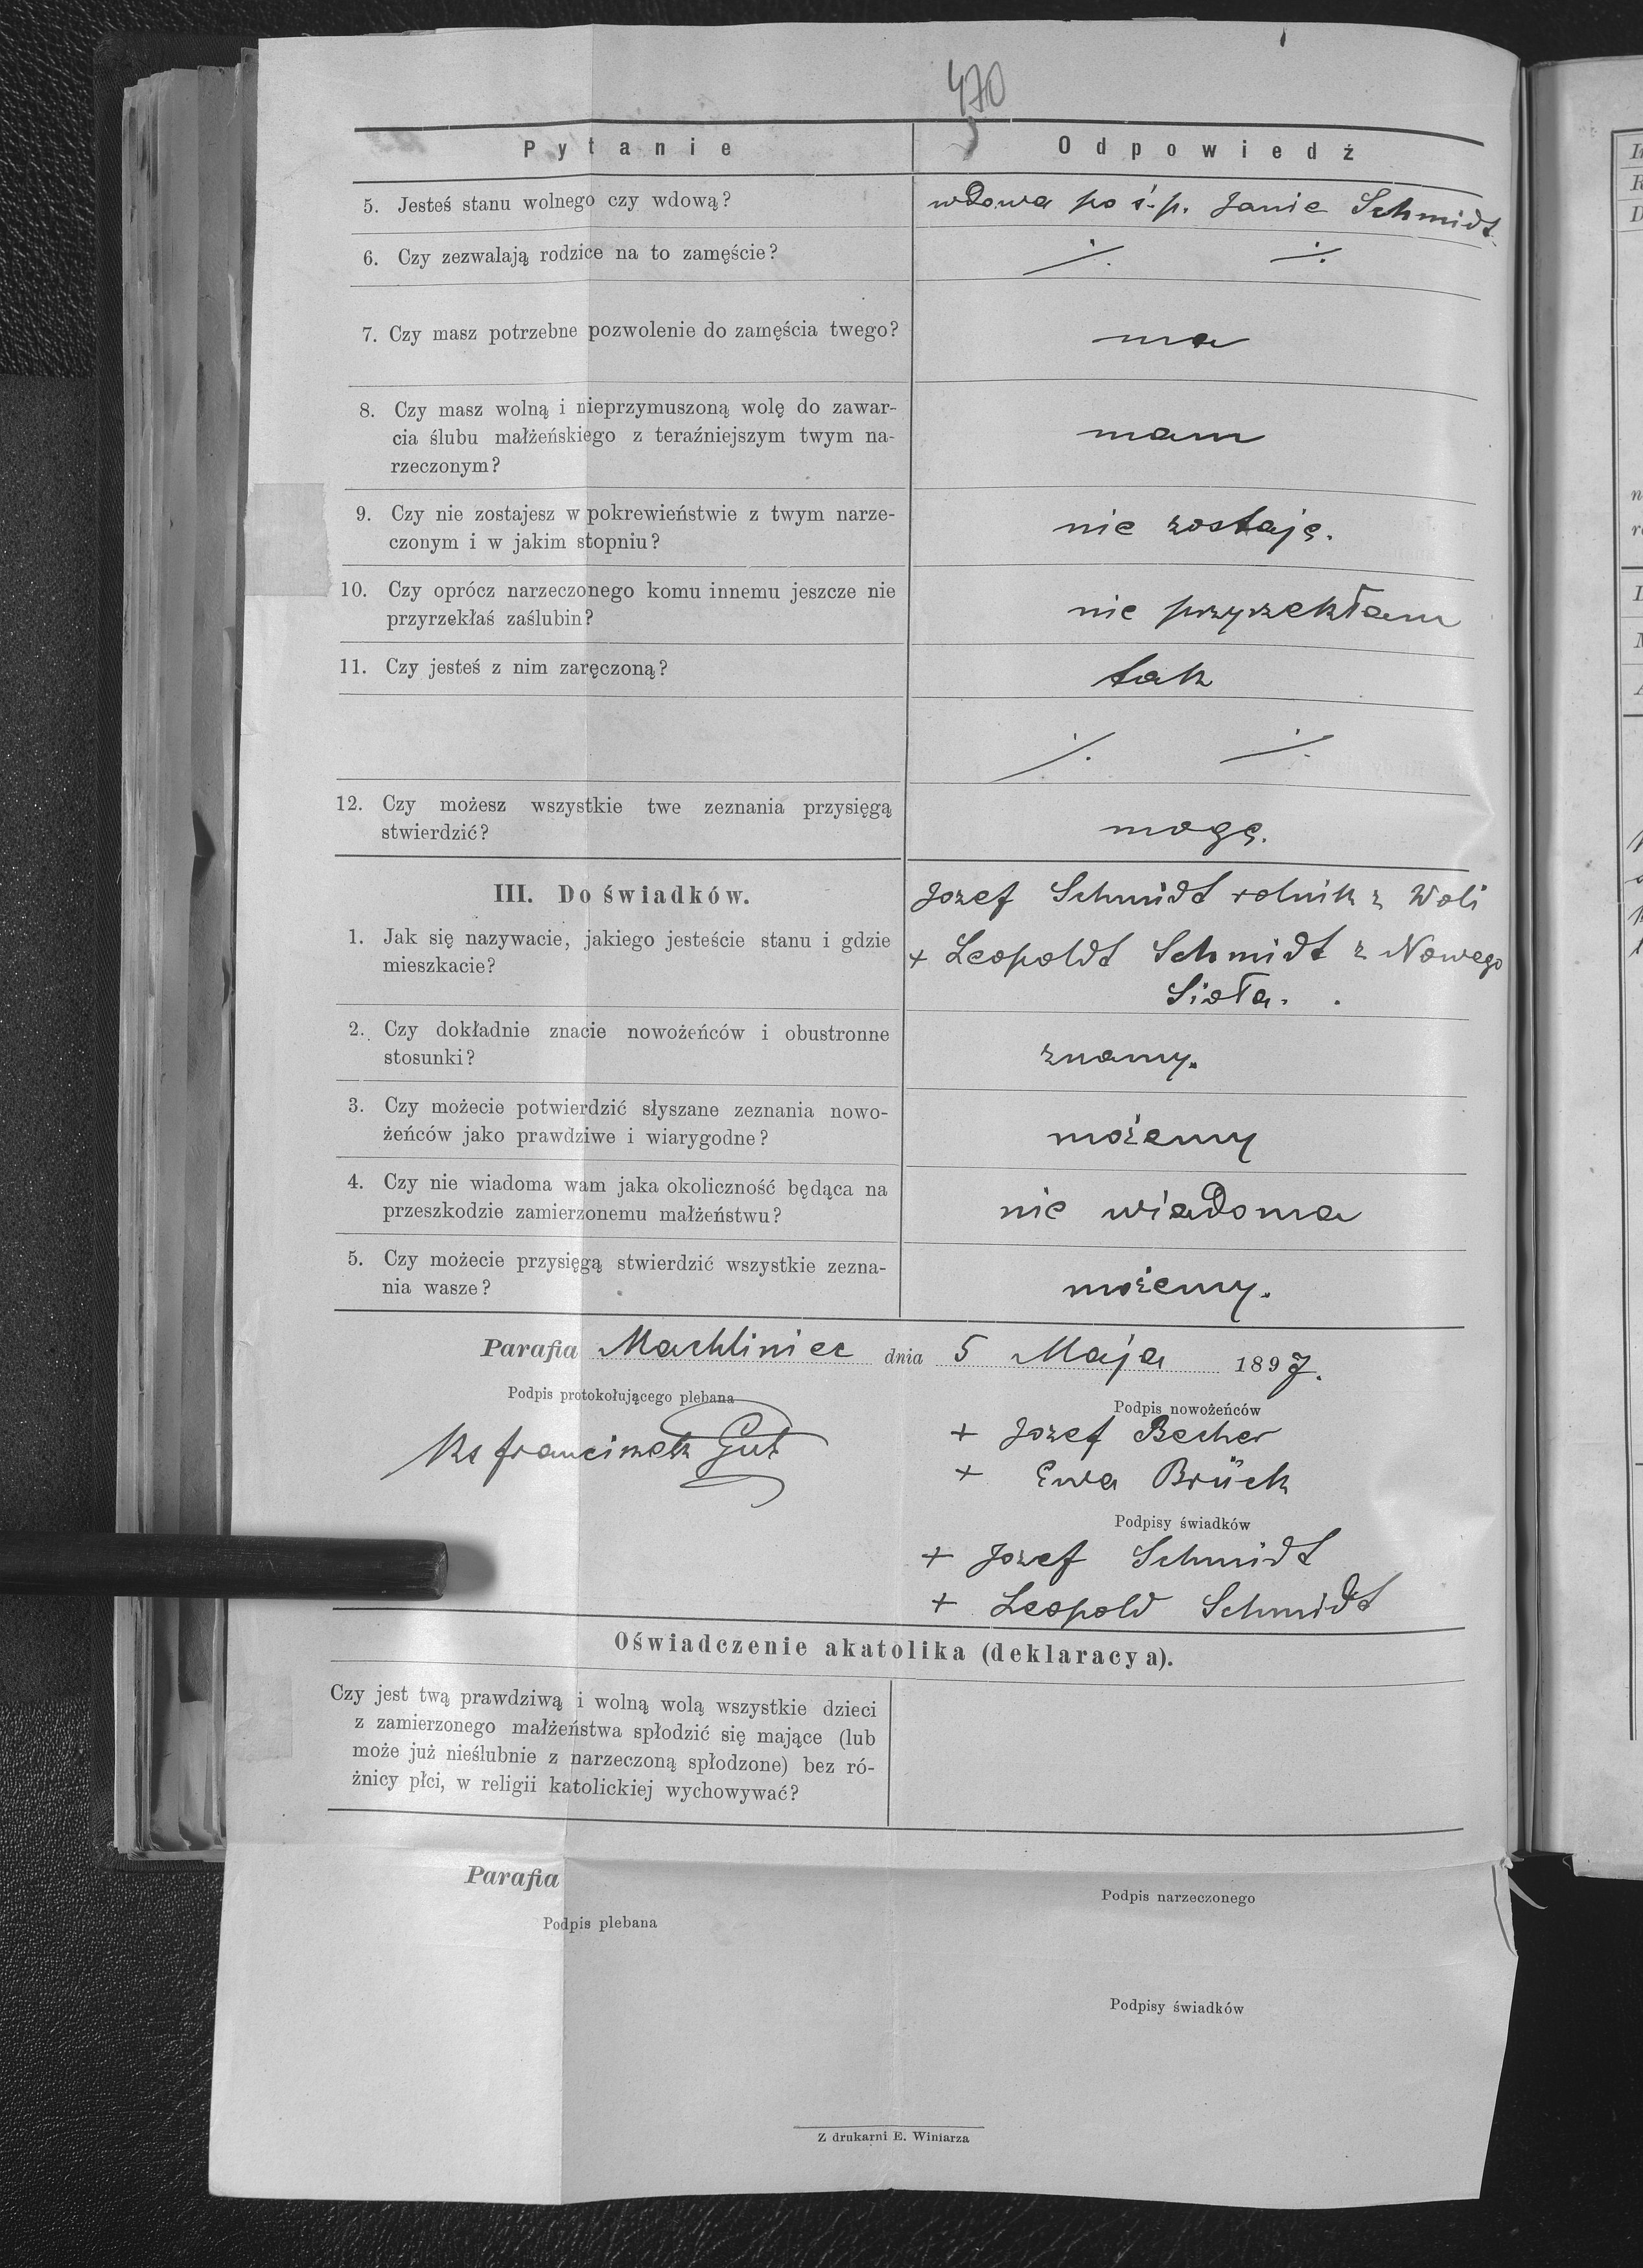 470
Pytanie Odpowiedź
5. Jesteś stanu wolnego czy wdową? wdowa po ś.p. Janie Schmidt.
6. Czy zezwalają rodzice na to zamęście? ·/. ·/.
7. Czy masz potrzebne pozwolenie do zamęścia twego? ma
8. Czy masz wolną i nieprzymuszoną wolę do zawar-
cia ślubu małżeńskiego z teraźniejszym twym na- mam
rzeczonym?
9. Czy nie zostajesz w pokrewieństwie z twym narze- nie zostaję.
czonym i w jakim stopniu?
10. Czy oprócz narzeczonego komu innemu jeszcze nie nie przyrzekłam
przyrzekłaś zaślubin?
11. Czy jesteś z nim zaręczoną? tak
·/. ·/.
12. Czy możesz wszystkie twe zeznania przysięgą mogę.
stwierdzić?
III. Do świadków. Jozef Schmidt rolnik z Woli
1. Jak się nazywacie, jakiego jesteście stanu i gdzie + Leopoldt Schmidt z Nowego
mieszkacie? Sioła.
2. Czy dokładnie znacie nowożeńców i obustronne znamy.
stosunki?
3. Czy możecie potwierdzić słyszane zeznania nowo- możemy
żeńców jako prawdziwe i wiarygodne?
4. Czy nie wiadoma wam jaka okoliczność będąca na nie wiadoma
przeszkodzie zamierzonemu małżeństwu?
5. Czy możecie przysięgą stwierdzić wszystkie zezna- możemy.
nia wasze?
Parafia Machliniec dnia 5 Maja 1897.
Podpis protokołującego plebana Podpis nowożeńców
Ks Franciszek Gut + Jozef Becher
+ Ewa Brück
Podpisy świadków
+ Jozef Schmidt
+ Leopold Schmidt
Oświadczenie akatolika (deklaracya).
Czy jest twą prawdziwą i wolną wolą wszystkie dzieci
z zamierzonego małżeństwa spłodzić się mające (lub
może już nieślubnie z narzeczoną spłodzone) bez ró-
żnicy płci, w religii katolickiej wychowywać?
Parafia
Podpis narzeczonego
Podpis plebana
Podpisy świadków
Z drukarni E. Winiarza